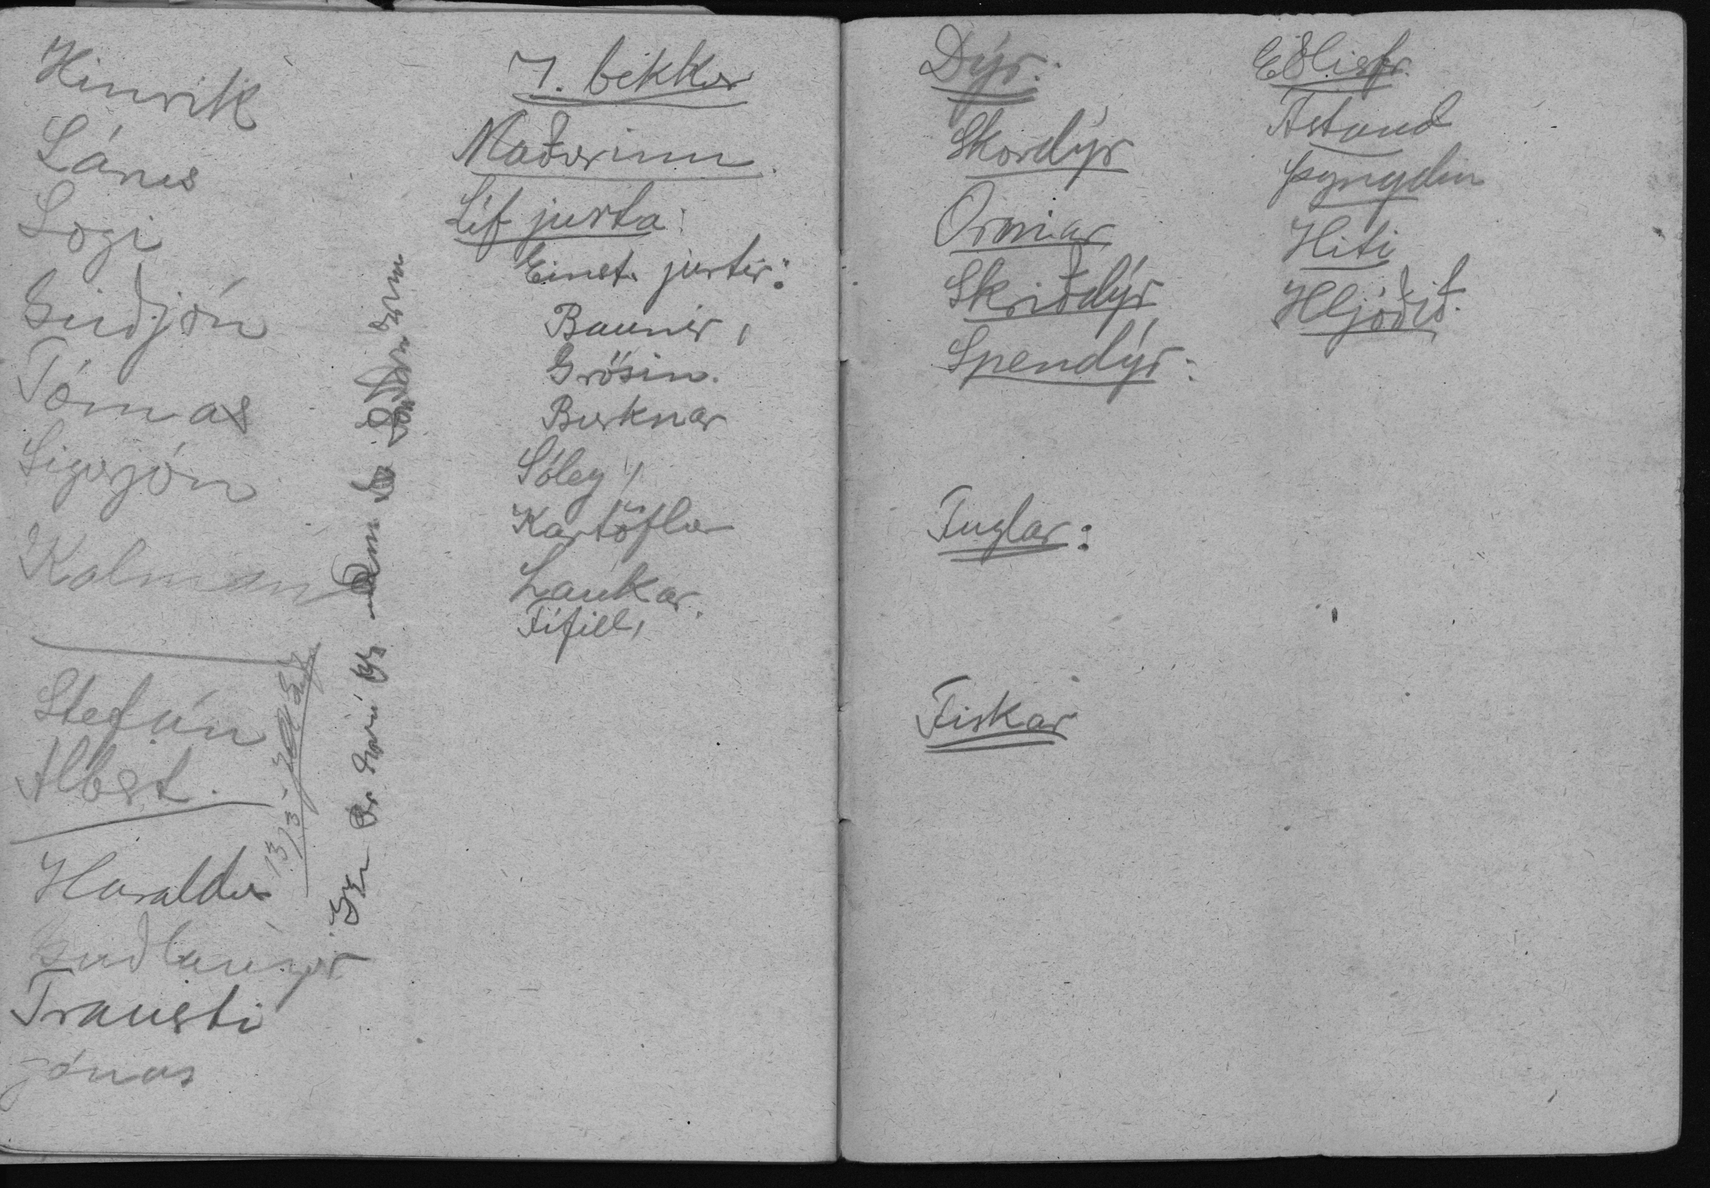 Hinrik
Lárus
Logi
Guðjón
Tómas
Sigurjón
Kalman
Stefán
Albert.
Haraldur
Guðlaugur
Trausti
Jónas
13/3
7. bekkur
Maðurinn
Líf jurta:
Einst. jurtir:
Baunir,
Grösin.
Burknar
Sóley,
Kartöflur
Laukar.
Fífill,
Dýr:
Skordýr
Ormar
Skriðdýr
Spendýr:
Fuglar:
Fiskar
Eðlisfr.
Ástand
Þyngdin
Hiti
Hljóðið.